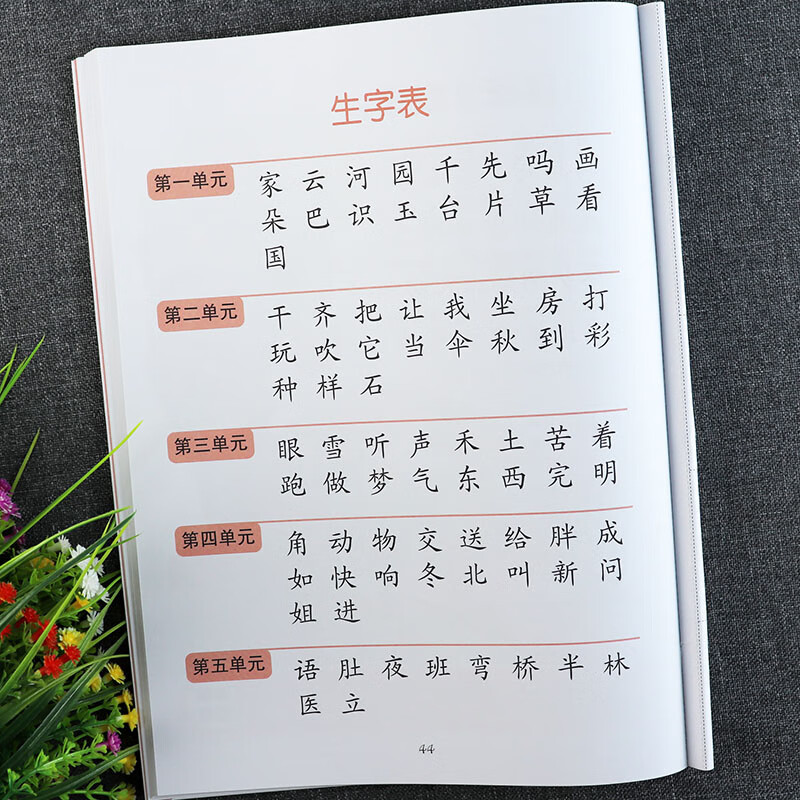 生字表
第一单元 家 云 河 园 千 先 吗 画
朵 巴 识 玉 台 片 草 看
国
第二单元 干 齐 把 让 我 坐 房 打
玩 吹 它 当 伞 秋 到 彩
种 样 石
第三单元 眼 雪 听 声 禾 土 苦 着
跑 做 梦 气 东 西 完 明
第四单元 角 动 物 交 送 给 胖 成
如 快 响 冬 北 叫 新 问
姐 进
第五单元 语 肚 夜 班 弯 桥 半 林
医 立
44